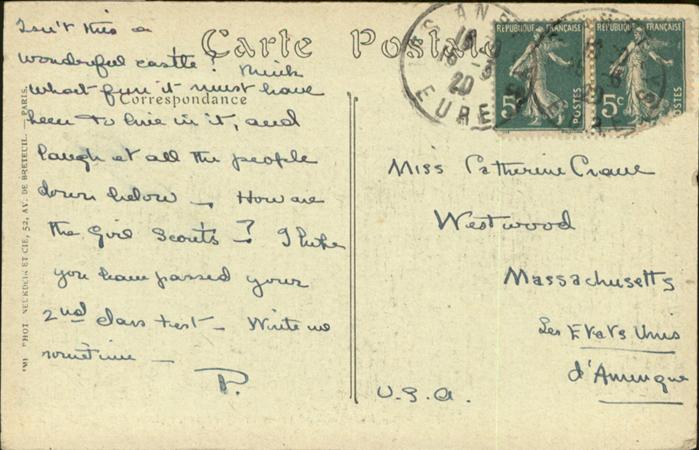 Isn't this a
wonderful castle! Think
what fun it must have
been to live in it, and
laugh at all the people
down below — How are
the Girl Scouts — ? I hope
you have passed your
2nd class test — Write me
sometime —
P.
Carte Postale
Correspondance
PHOT. NEURDEIN ET CIE, 52, AV. DE BRETEUIL. — PARIS.
18 - 3
20
EURE
REPUBLIQUE FRANÇAISE
5c
POSTES
REPUBLIQUE FRANÇAISE
5c
POSTES
Miss Catherine Crane
Westwood
Massachusetts
Les Etats Unis
d'Amerique
U.S.A.